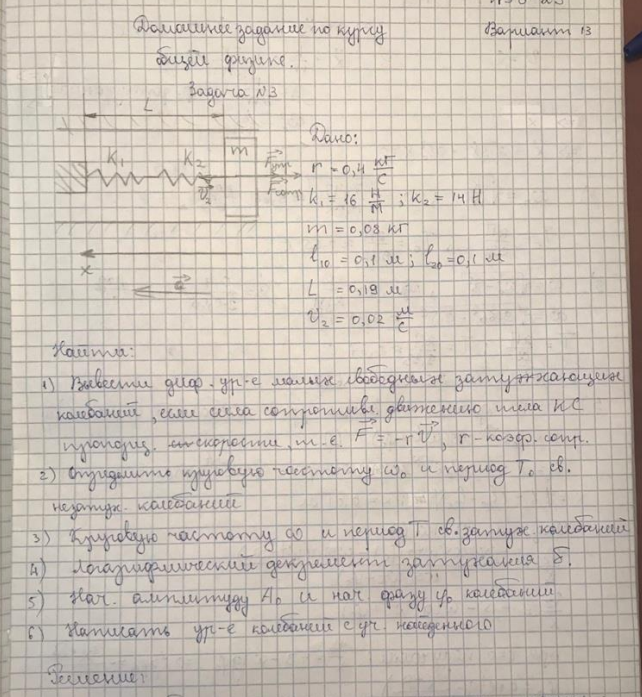 Домашнее задание по курсу
Вариант 13
общей физике.
Задача №3
L
K₁
K₂
m
v₂
x
Дано:
r = 0,4 кг/с
k₁ = 16 Н/м ; k₂ = 14 Н
m = 0,08 кг
l₁₀ = 0,1 м ; l₂₀ = 0,1 м
L = 0,19 м
v₂ = 0,02 м/с
Найти:
1) Вывести диф. ур-е малых свободных затухающих
колебаний, если сила сопротивл. движению тела КС
пропорц. скорости, т.е. F = -rV, r - коэф. сопр.
2) Определить круговую частоту ω₀ и период T₀ св.
незатух. колебаний
3) Круговую частоту ω и период T св. затух. колебаний
4) Логарифмический декремент затухания δ.
5) Нач. амплитуду A₀ и нач фазу φ₀ колебаний
6) Написать ур-е колебаний с уч. найденного
Решение: